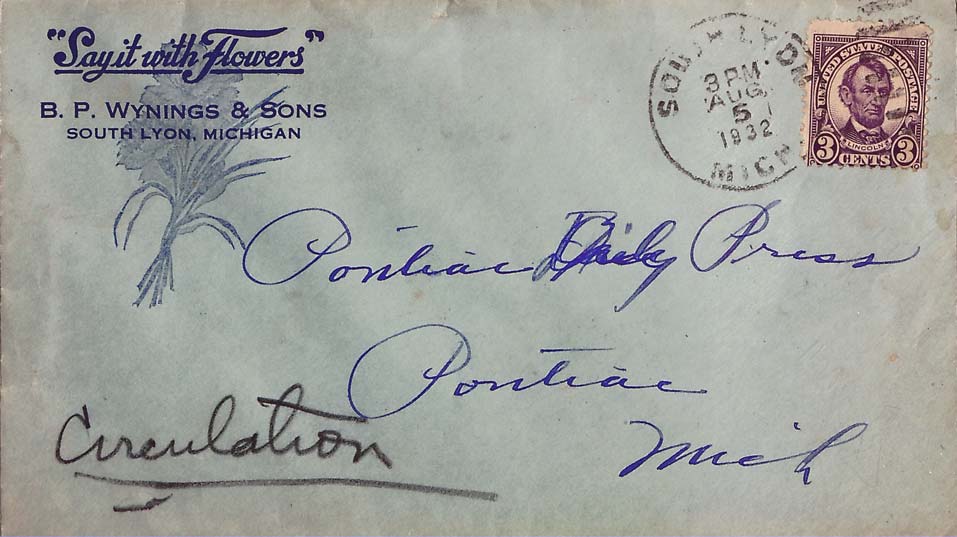 "Say it with Flowers"
B. P. WYNINGS & SONS
SOUTH LYON, MICHIGAN
SOUTH LYON
3 PM
AUG
5
1932
MICH
UNITED STATES POSTAGE
LINCOLN
3 CENTS 3
Pontiac Daily Press
Pontiac
Mich
Circulation